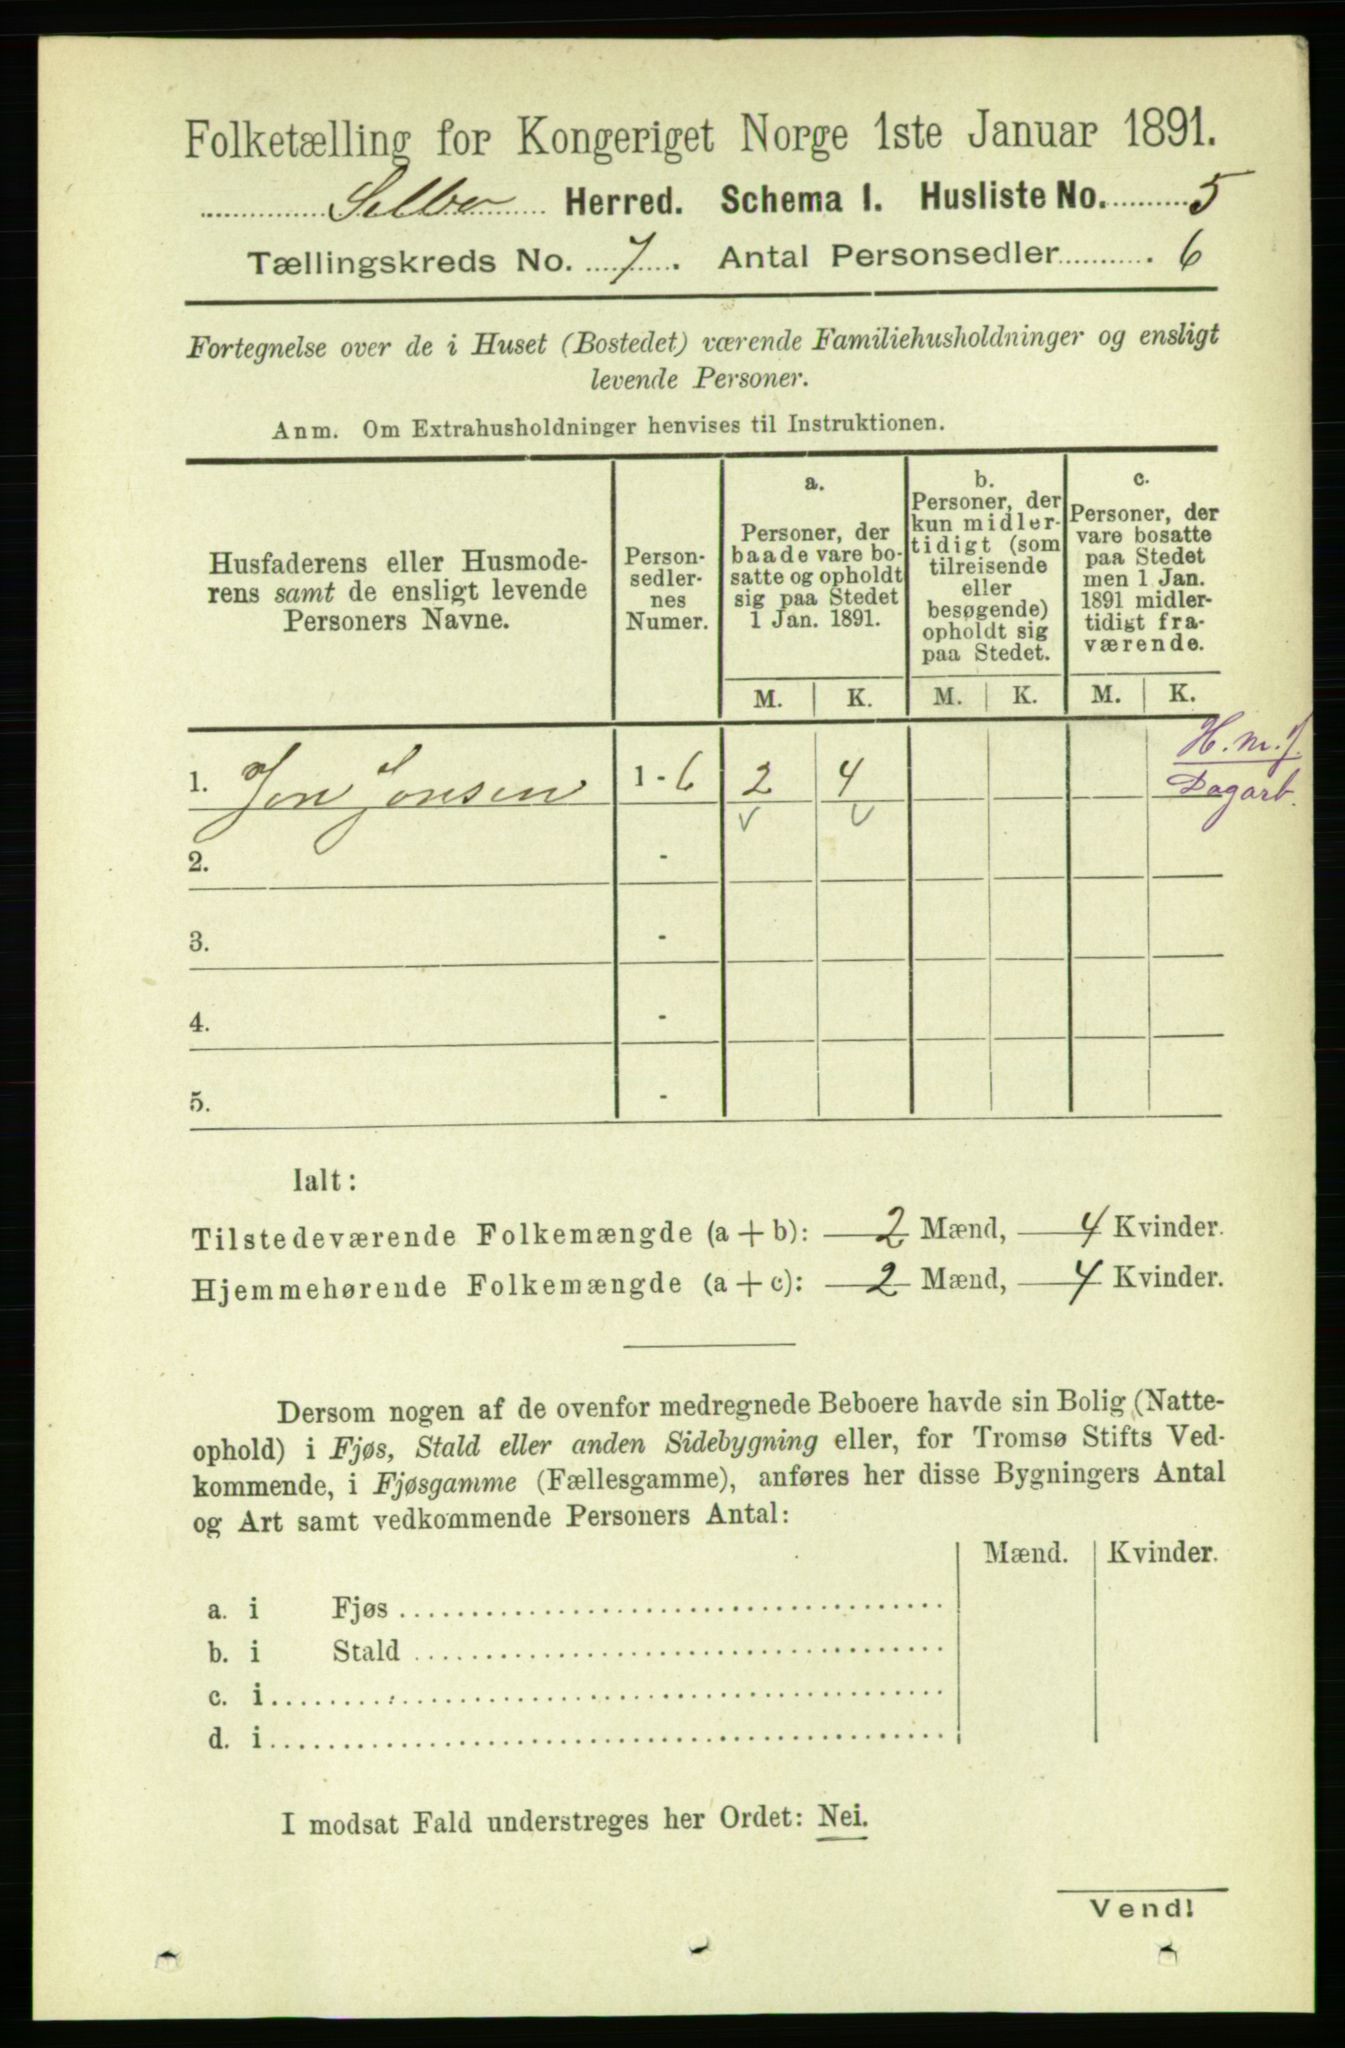 Folketælling for Kongeriget Norge 1ste Januar 1891.
Selbo Herred. Schema I. Husliste No. 5
Tællingskreds No. 7. Antal Personsedler 6
Fortegnelse over de i Huset (Bostedet) værende Familiehusholdninger og ensligt
levende Personer.
Anm. Om Extrahusholdninger henvises til Instruktionen.
Husfaderens eller Husmode-
rens samt de ensligt levende
Personers Navne.
Person-
sedler-
nes
Numer.
a.
Personer, der
baade vare bo-
satte og opholdt
sig paa Stedet
1 Jan. 1891.
b.
Personer, der
kun midler-
tidigt (som
tilreisende
eller
besøgende)
opholdt sig
paa Stedet.
c.
Personer, der
vare bosatte
paa Stedet
men 1 Jan.
1891 midler-
tidigt fra-
værende.
M. K. M. K. M. K.
H. m. J.
1. Jon Jonsen 1 - 6 2 4
Dagarb.
2. -
3. -
4. -
5. -
Ialt:
Tilstedeværende Folkemængde (a + b): 2 Mænd, 4 Kvinder.
Hjemmehørende Folkemængde (a + c): 2 Mænd, 4 Kvinder.
Dersom nogen af de ovenfor medregnede Beboere havde sin Bolig (Natte-
ophold) i Fjøs, Stald eller anden Sidebygning eller, for Tromsø Stifts Ved-
kommende, i Fjøsgamme (Fællesgamme), anføres her disse Bygningers Antal
og Art samt vedkommende Personers Antal:
Mænd. Kvinder.
a. i Fjøs
b. i Stald
c. i
d. i
I modsat Fald understreges her Ordet: Nei.
Vend!